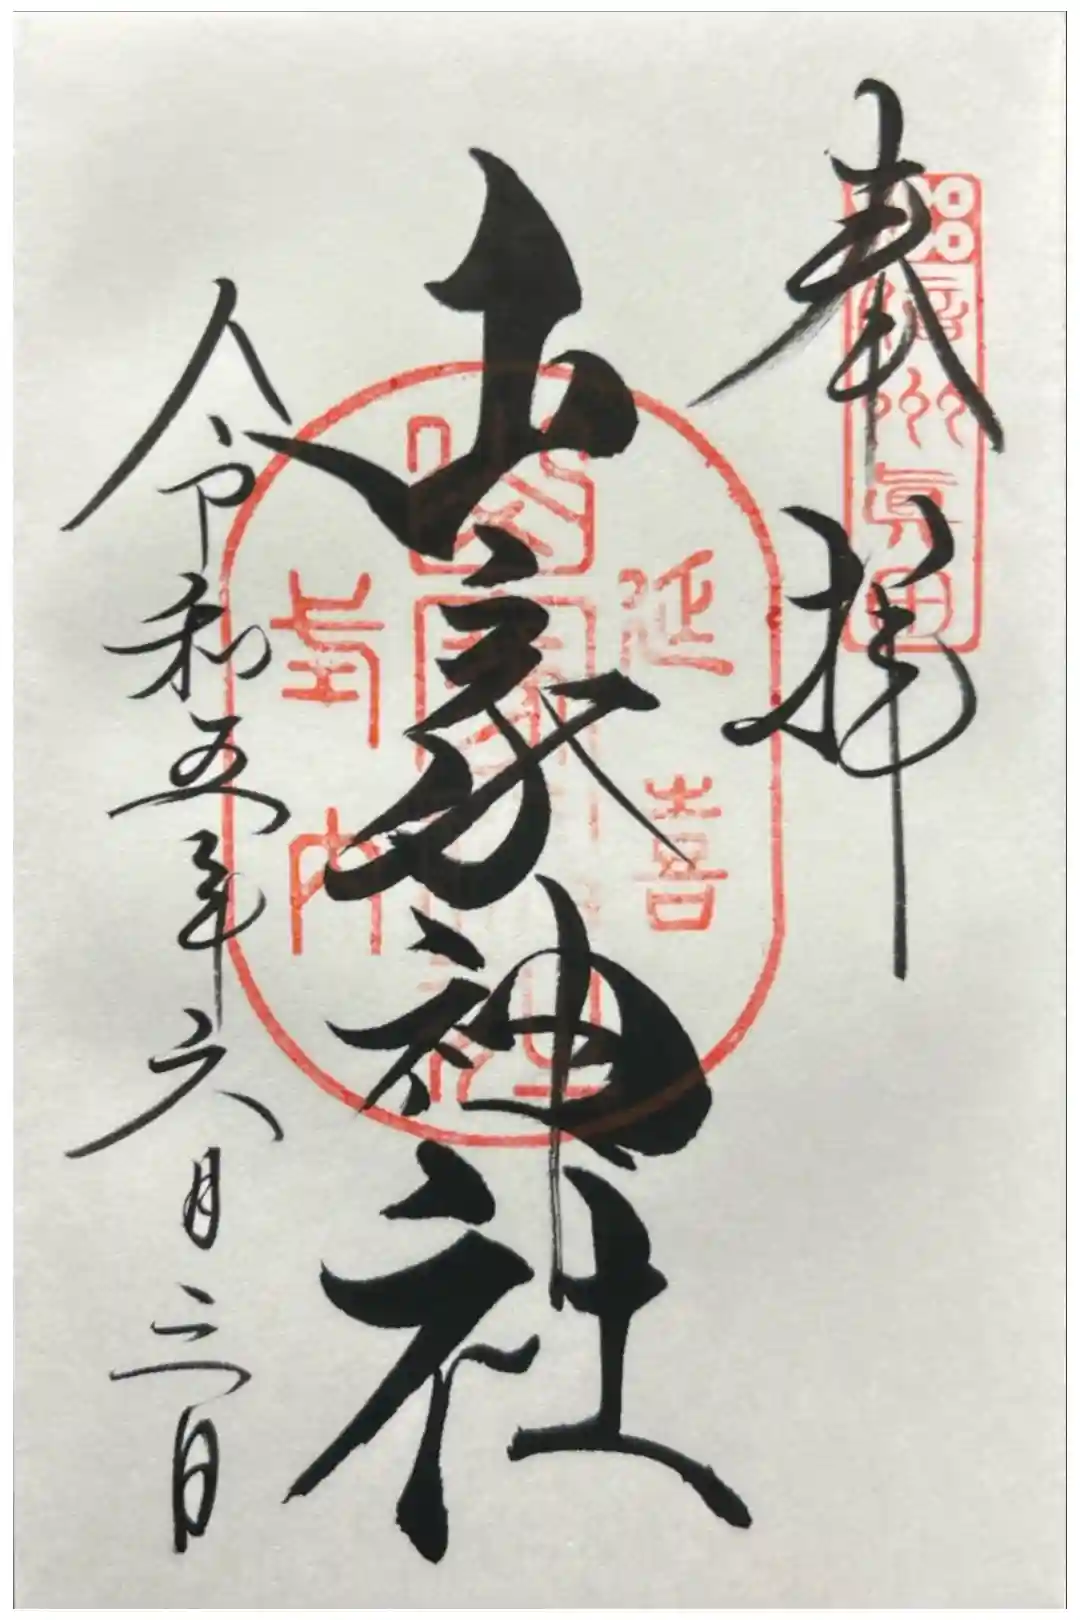 奉拝
信州真田
山家神社
延喜式内
山家神社
令和五年六月三日